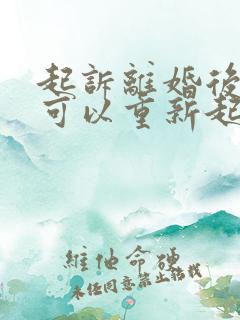 起訴離婚後
可以重新起
維他命硬
未經同意禁止轉載